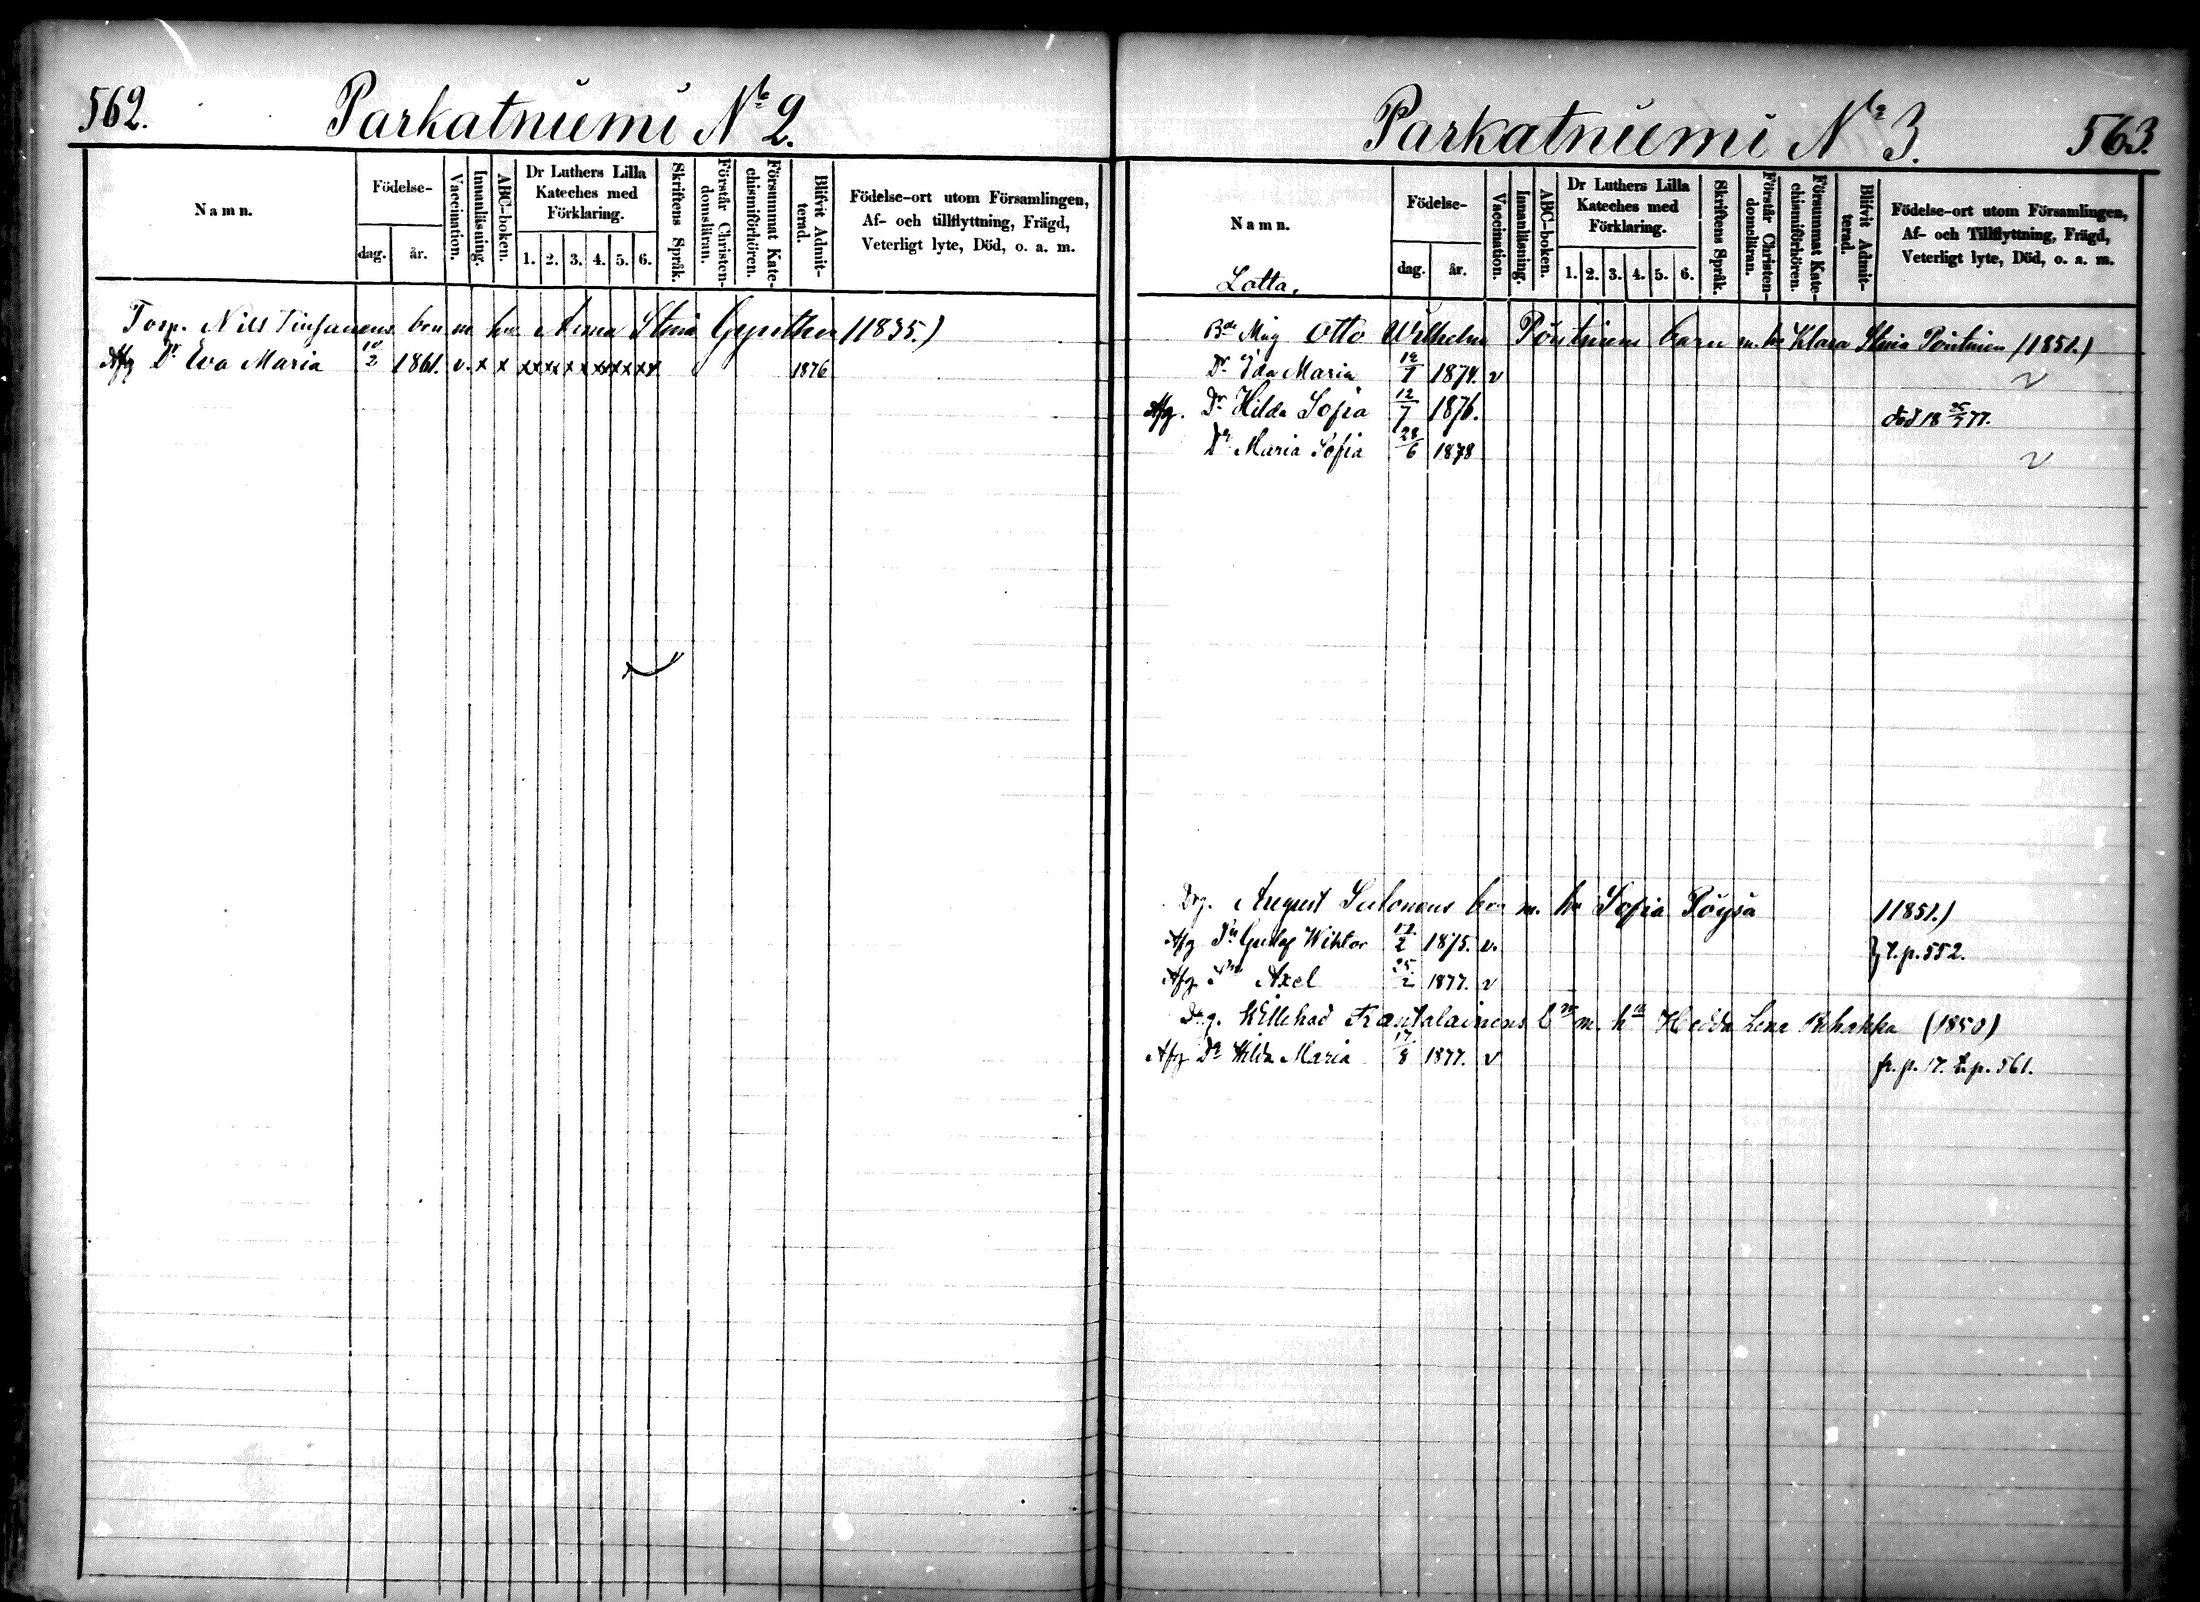 562.
Parkatniemi No 2.
Namn.
Födelse-
dag.
år.
Vaccination.
Innanläsning.
ABC-boken.
Dr Luthers Lilla
Kateches med
Förklaring.
1. 2. 3. 4. 5. 6.
Skriftens Språk.
Förstår Christen-
domsläran.
Försummat Kate-
chismiförhören.
Blifvit Admit-
terad.
Födelse-ort utom Församlingen,
Af- och tillflyttning, Frägd,
Veterligt lyte, Död, o. a. m.
Torp. Nils barn m. hu Anna Stina (1835.)
Afg Dr Eva Maria 10/2 1861. v. x x xxxxxxxxxx 1876
Parkatniemi No 3.
563.
Namn.
Lotta.
Födelse-
dag.
år.
Vaccination.
Innanläsning.
ABC-boken.
Dr Luthers Lilla
Kateches med
Förklaring.
1. 2. 3. 4. 5. 6.
Skriftens Språk.
Förstår Christen-
domsläran.
Försummat Kate-
chismiförhören.
Blifvit Admit-
terad.
Födelse-ort utom Församlingen,
Af- och Tillflyttning, Frägd,
Veterligt lyte, Död, o. a. m.
Otto Wilhelm Pöntinens barn m. hu Klara Stina Pöntinen (1851.)
Dr Ida Maria 1874. v
Afg. Dr Hilda Sofia 12/7 1876. död 18 25/2 77.
Dr Maria Sofia 28/6 1878
Drg. August Sulonens barn m. hu Sofia Pöysä (1851.)
Afg Sn Gustaf Wiktor 12/2 1875. v. } t. p. 552.
Afg Sn Axel 25/2 1877. v
Drg. Willehad Rantalainens bn m. hu Hedda Lena (1850)
Afg Dr Hilda Maria 17/8 1877. v fr. p. 17. t. p. 561.